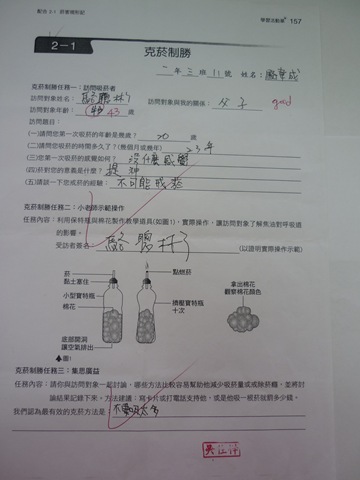 配合 2-1 菸害現形記
學習活動單 157
2-1
克菸制勝
二年三班11號 姓名:
克菸制勝任務一:訪問吸菸者
訪問對象姓名: 訪問對象與我的關係: 父子 good
訪問對象年齡: 43 歲
訪問題目:
(一)請問您第一次吸菸的年齡是幾歲? 20 歲
(二)請問您吸菸的時間多久了?(幾個月或幾年) 23年
(三)您第一次吸菸的感覺如何? 沒什麼感覺
(四)菸對您的意義是什麼? 提神
(五)請談一下您戒菸的經驗: 不可能戒菸
克菸制勝任務二:小老師示範操作
任務內容:利用保特瓶與棉花製作教學道具(如圖1),實際操作,讓訪問對象了解焦油對呼吸道
的影響。
受訪者簽名: (以證明實際操作示範)
菸
黏土塞住
小型寶特瓶
棉花
底部開洞
讓空氣排出
點燃菸
擠壓寶特瓶
十次
拿出棉花
觀察棉花顏色
▲圖1
克菸制勝任務三:集思廣益
任務內容:請你與訪問對象一起討論,哪些方法比較容易幫助他減少吸菸量或戒除菸癮,並將討
論結果記錄下來。方法建議:寫卡片或打電話支持他,或是他吸一根菸就罰多少錢。
我們認為最有效的克菸方法是: 不要吸太多